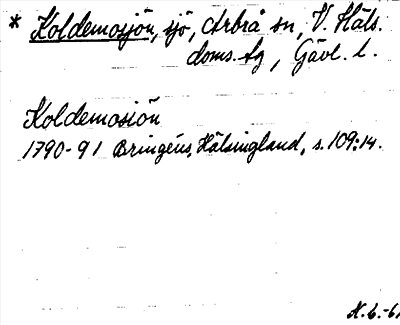 * Koldemosjön, sjö, Arbrå sn, V. Häls.
doms. ag, Gävl. l.
Koldemosiön
1790-91 Bringéus, Hälsingland, s. 109:14.